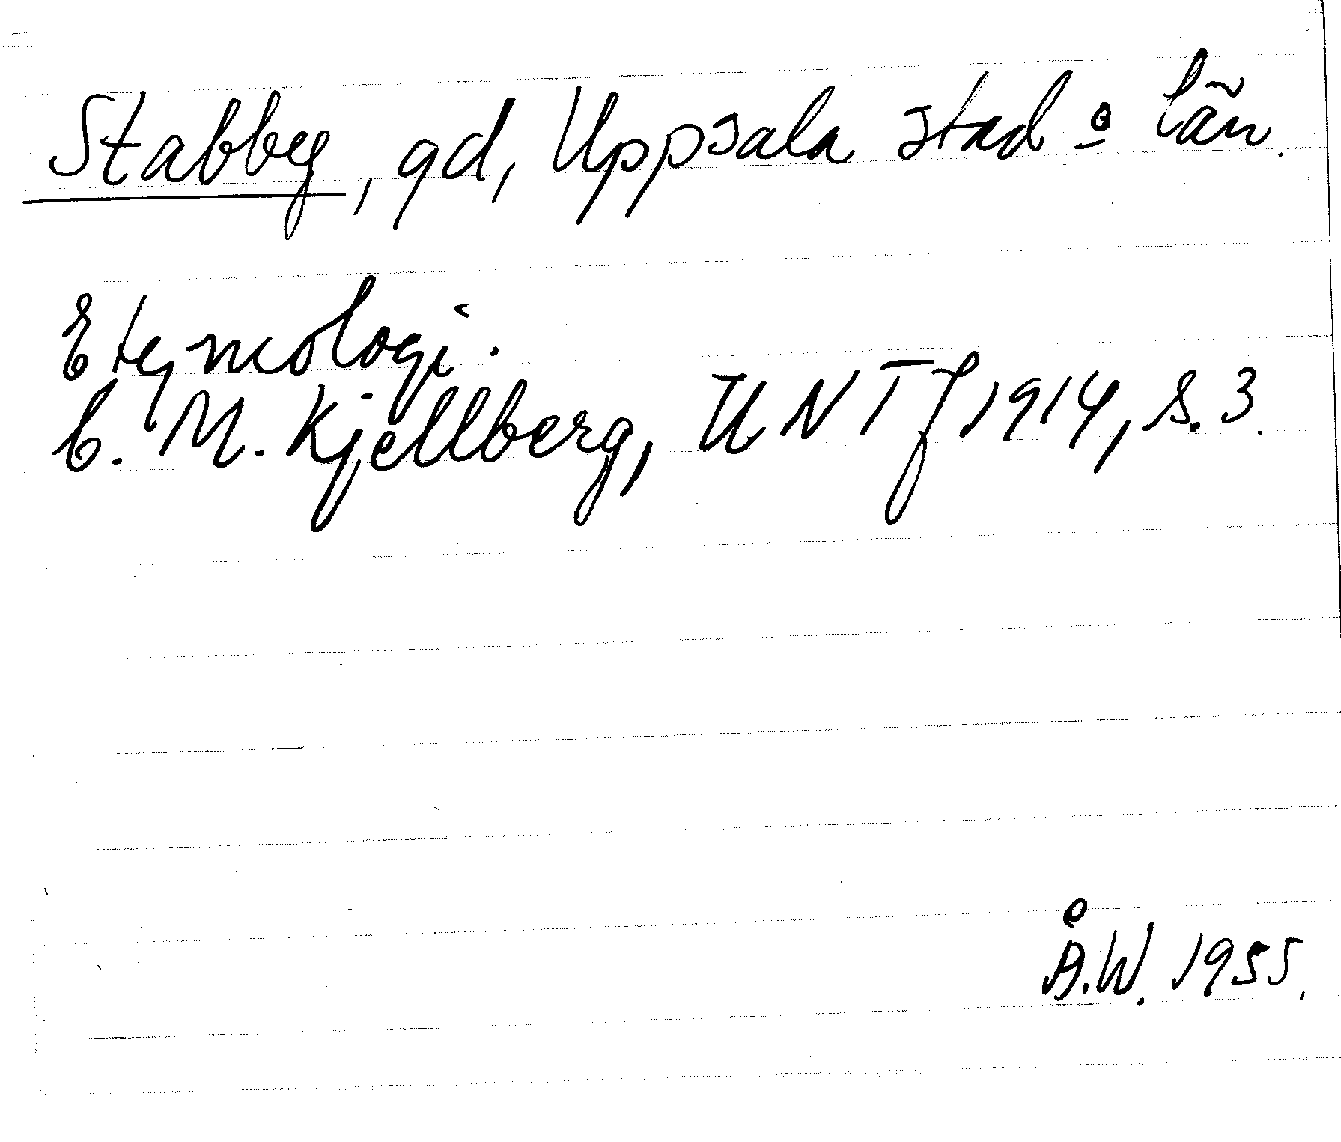 Stabby, gd, Uppsala stad o län.
Etymologi.
C. M. Kjellberg, UNT J 1914, s. 3.
Å.W. 1955.